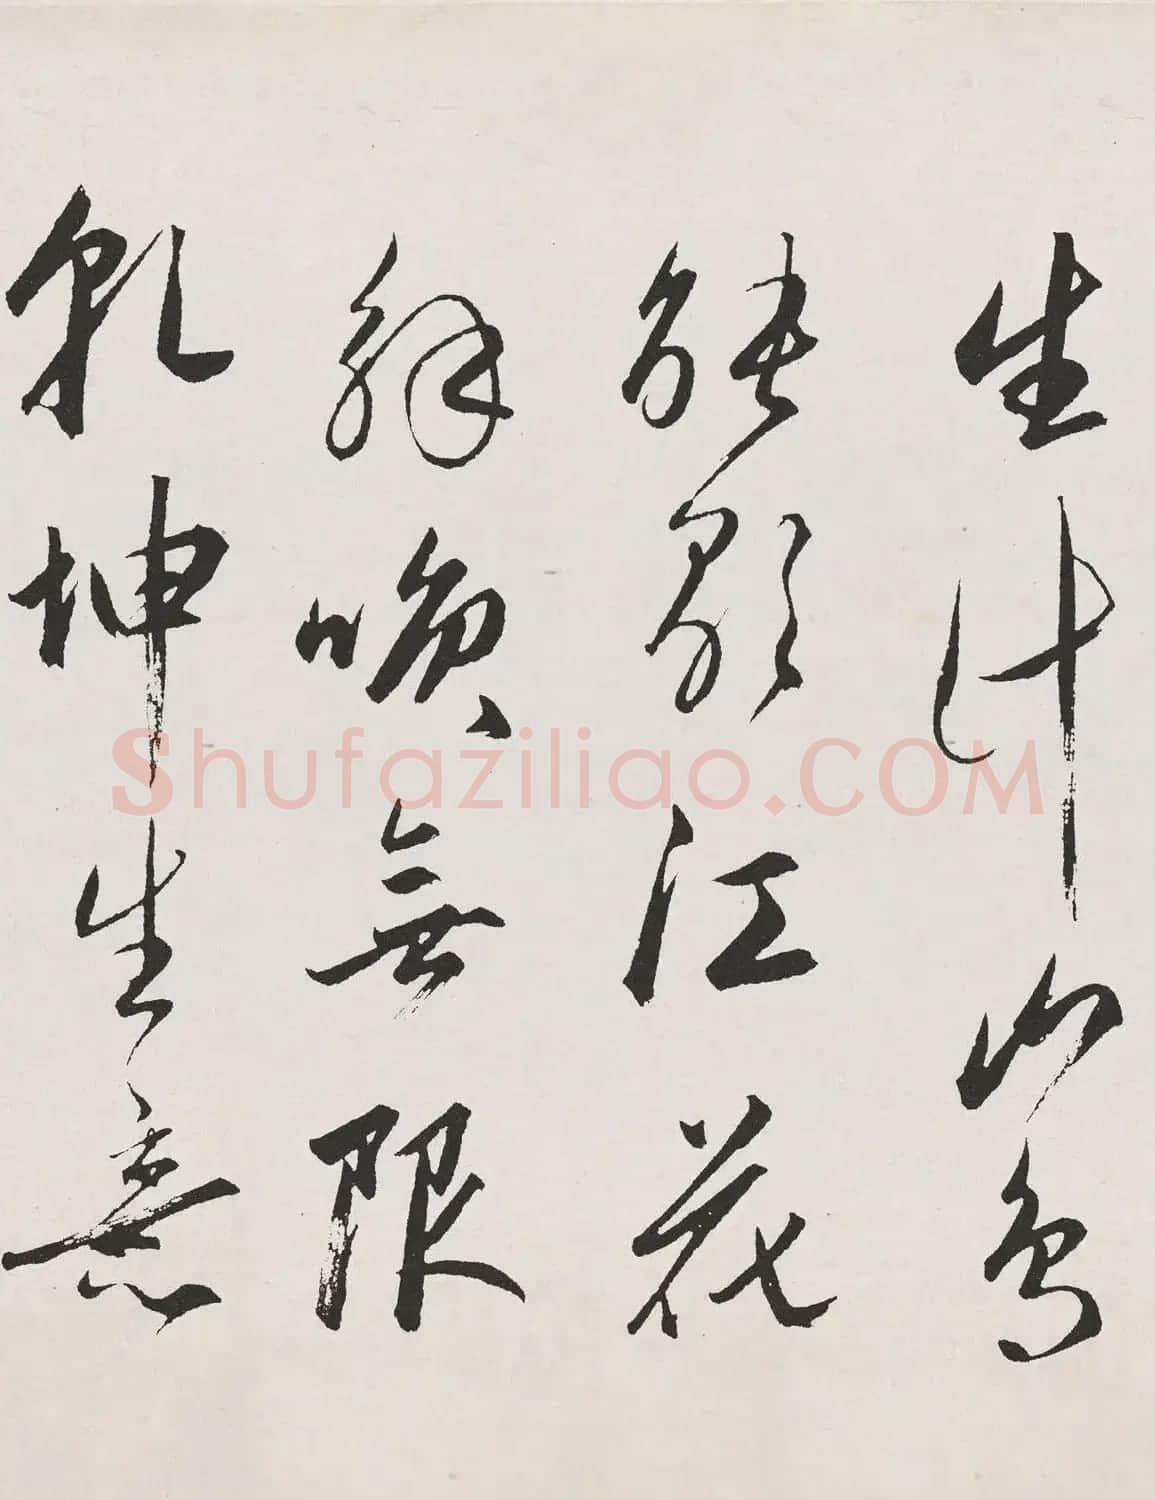 生计山鸟
能歌江花
解唤無限
乾坤生意
Shufaziliao.COM